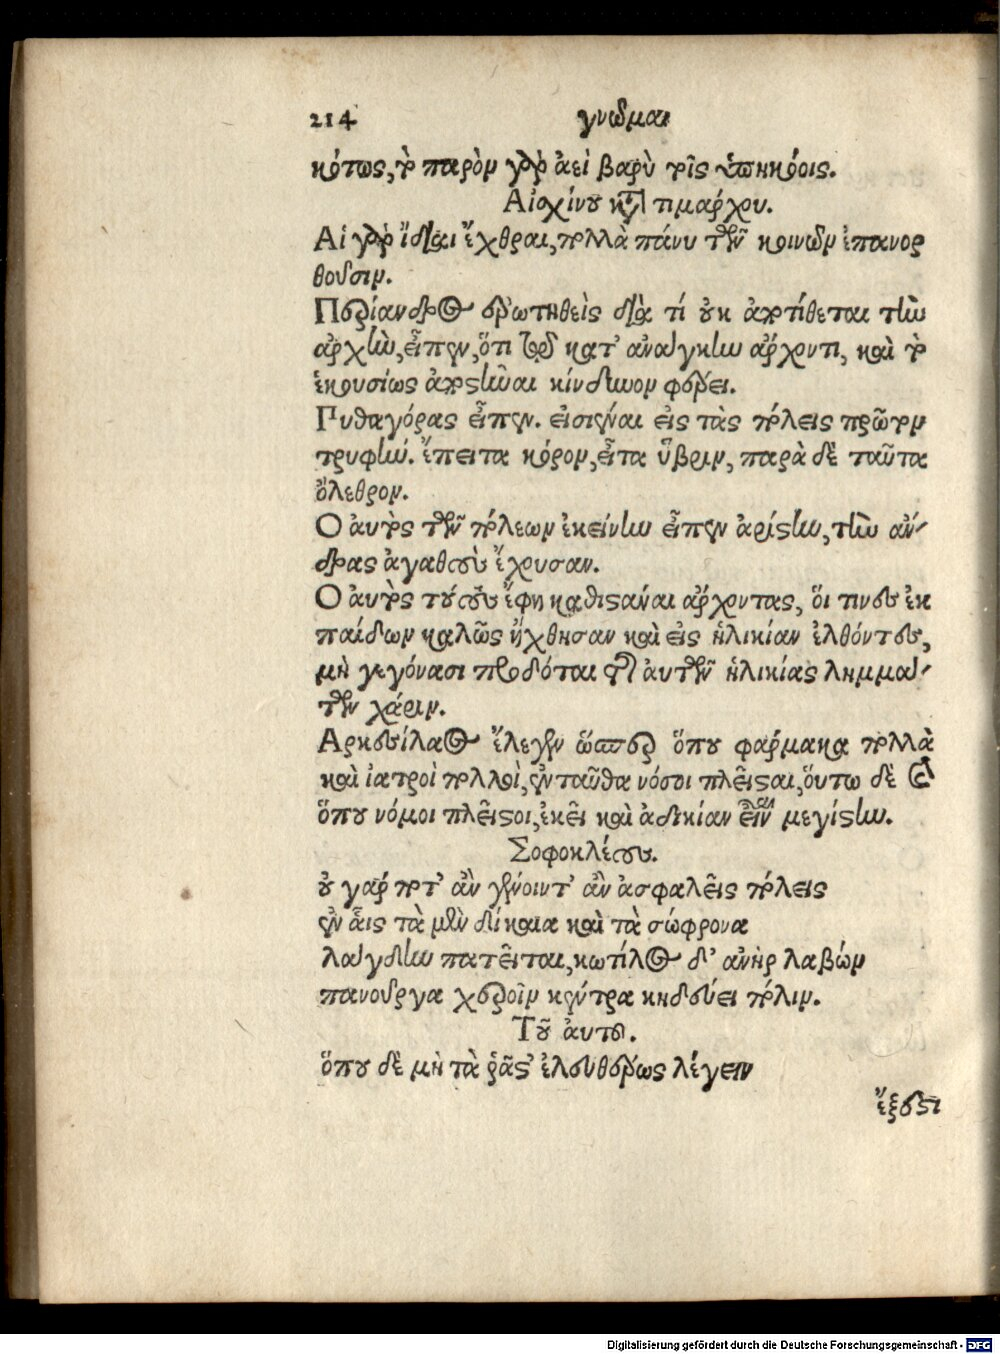 214 γνῶμαι
κότως, τὸ παρὸν γὰρ ἀεὶ βαρὺ τοῖς ὑπηκόοις.
Αἰσχίνου κατὰ τιμάρχου.
Αἱ γὰρ ἴδιαι ἔχθραι, πολλὰ πάνυ τῶν κοινῶν ἐπανορ
θοῦσιν.
Περίανδρος ἐρωτηθεὶς διὰ τί οὐκ ἀποτίθεται τὴν
ἀρχὴν, εἶπεν, ὅτι τῷ κατ' ἀνάγκην ἄρχοντι, καὶ τὸ
ἑκουσίως ἀποστῆναι κίνδυνον φέρει.
Πυθαγόρας εἶπεν. εἰσιέναι εἰς τὰς πόλεις πρῶτον
τρυφήν. ἔπειτα κόρον, εἶτα ὕβριν, παρὰ δὲ ταῦτα
ὄλεθρον.
Ο αὐτὸς τῶν πόλεων ἐκείνην εἶπεν ἀρίστην, τὴν ἄν-
δρας ἀγαθοὺς ἔχουσαν.
Ο αὐτὸς τούτους ἔφη καθιστάναι ἄρχοντας, ὅι τινες ἐκ
παίδων καλῶς ἤχθησαν καὶ εἰς ἡλικίαν ἐλθόντες,
μὴ γεγόνασι προδόται τῆς αὐτῶν ἡλικίας λημμά-
των χάριν.
Αρκεσίλαος ἔλεγεν ὥσπερ ὅπου φάρμακα πολλὰ
καὶ ἰατροὶ πολλοὶ, ἐνταῦθα νόσοι πλεῖσαι, ὅυτω δὲ καὶ
ὅπου νόμοι πλεῖστοι, ἐκεῖ καὶ ἀδικίαν εἶναι μεγίστην.
Σοφοκλέους.
ὀυ γάρ ποτ' ἂν γένοιντ' ἂν ἀσφαλεῖς πόλεις
ἐν ἇις τὰ μὲν δίκαια καὶ τὰ σώφρονα
λάγδην πατεῖται, κωτίλος δ' ἀνὴρ λαβὼν
πανοῦργα χεροῖν κέντρα κηδεύει πόλιν.
Τοῦ ἀυτοῦ.
ὅπου δὲ μὴ τὰ ῥᾶστ' ἐλευθέρως λέγειν
ἔξεστι
Digitalisierung gefördert durch die Deutsche Forschungsgemeinschaft - DFG